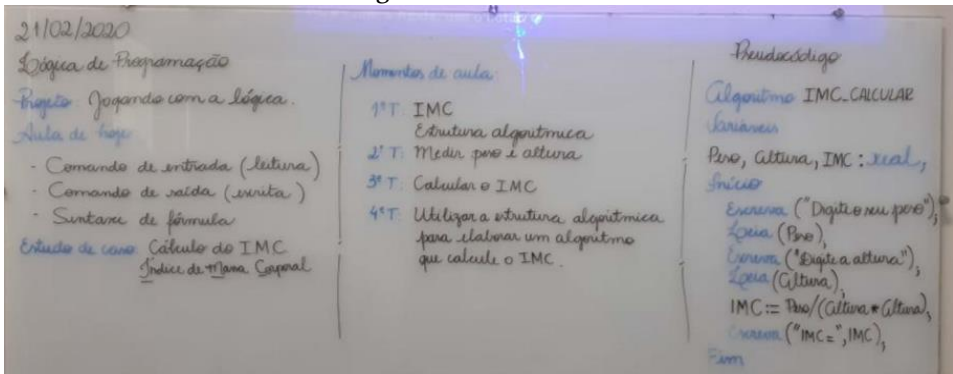 21/02/2020
Lógica de Programação
Projeto: Jogando com a lógica.
Aula de hoje
- Comando de entrada (leitura)
- Comando de saída (escrita)
- Sintaxe de fórmula
Estudo de caso: Cálculo do IMC
Índice de Massa Corporal
Momentos de aula:
1º T: IMC
Estrutura algorítmica
2º T: Medir peso e altura
3º T: Calcular o IMC
4º T: Utilizar a estrutura algorítmica
para elaborar um algoritmo
que calcule o IMC.
Pseudocódigo
Algoritmo IMC_CALCULAR
Variáveis
Peso, Altura, IMC: real;
Início
Escreva ("Digite o seu peso");
Leia (Peso);
Escreva ("Digite a altura");
Leia (Altura);
IMC:= Peso/(Altura*Altura);
Escreva ("IMC=",IMC);
Fim